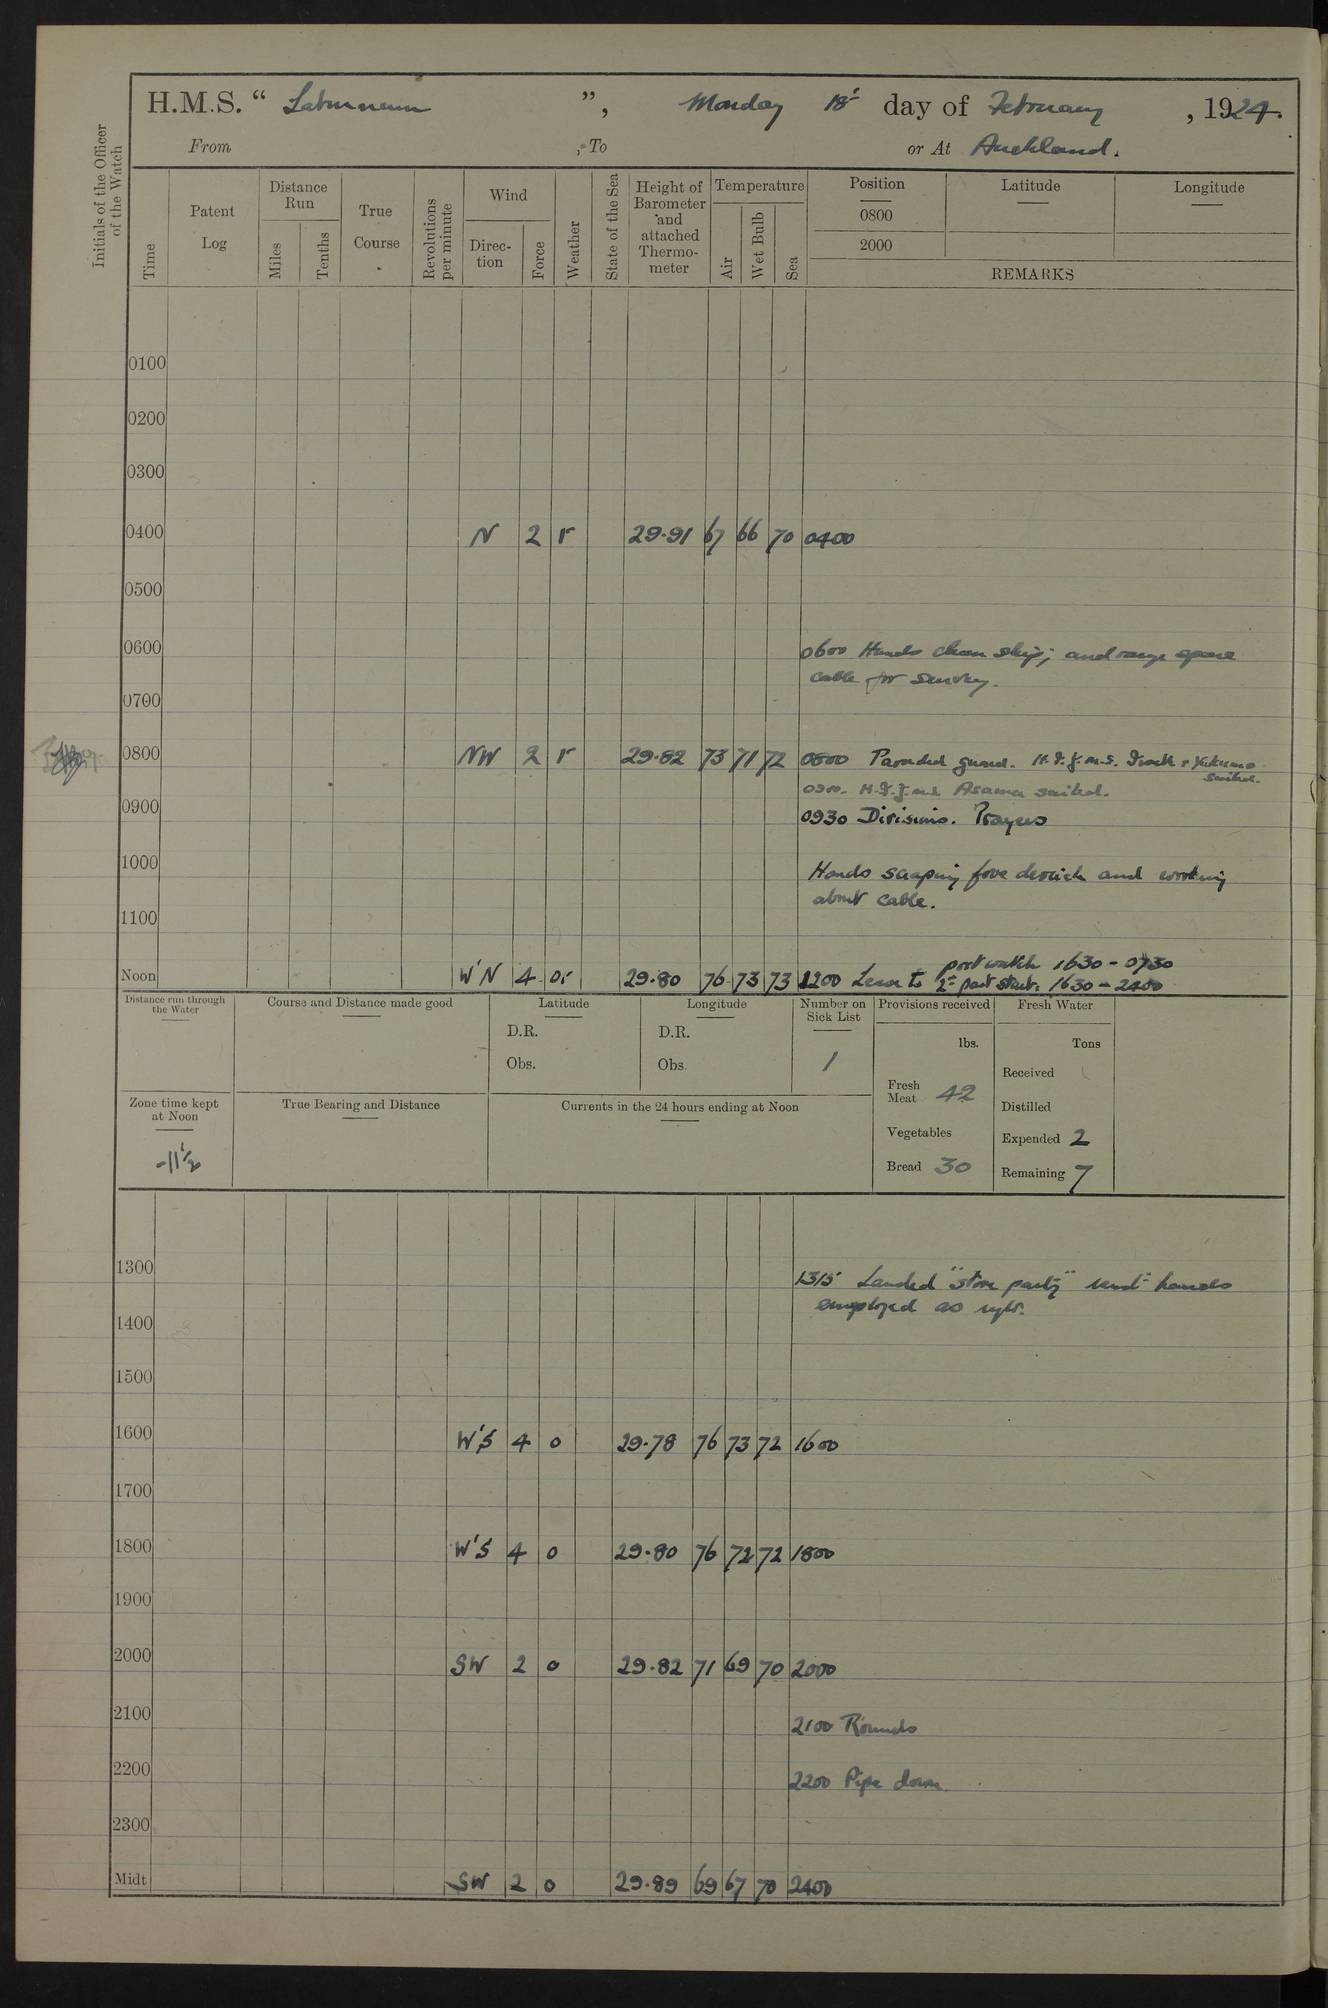 H.M.S. “ Laburnum ”, Monday 18th day of February , 1924.
From , To or At Auckland.
Initials of the Officer of the Watch
Time
Patent Log
Distance Run
Miles
Tenths
True Course
Revolutions per minute
Wind
Direc-tion
Force
Weather
State of the Sea
Height of Barometer and attached Thermo-meter
Temperature
Air
Wet Bulb
Sea
Position
Latitude
Longitude
0800
2000
REMARKS
0100
0200
0300
0400 N 2 r 29.91 67 66 70 0400
0500
0600 0600 Hands clean ship; and range spare
cable for survey.
0700
0800 NW 2 r 29.82 73 71 72 0800 Paraded guard. H.I.J.M.S. Iwate & Yakumo
sailed.
0900. H.I.J.M.S Asama sailed.
0900
0930 Divisions. Prayers
1000 Hands scraping fore derrick and working
about cable.
1100
port watch 1630 - 0730
Noon W'N 4 or 29.80 76 73 73 1200 Leave to 2nd part starb: 1630 - 2400
Distance run through the Water
Course and Distance made good
Latitude
D.R.
Obs.
Longitude
D.R.
Obs.
Number on Sick List
1
Provisions received
lbs.
Fresh Meat 42
Vegetables
Bread 30
Fresh Water
Tons
Received
Distilled
Expended 2
Remaining 7
Zone time kept at Noon
-11½
True Bearing and Distance
Currents in the 24 hours ending at Noon
1300 1315 Landed "store party" remdr hands
employed as reqte.
1400
1500
1600 W'S 4 o 29.78 76 73 72 1600
1700
1800 W'S 4 o 29.80 76 72 72 1800
1900
2000 SW 2 o 29.82 71 69 70 2000
2100 2100 Rounds
2200 2200 Pipe down
2300
Midt SW 2 o 29.89 69 67 70 2400